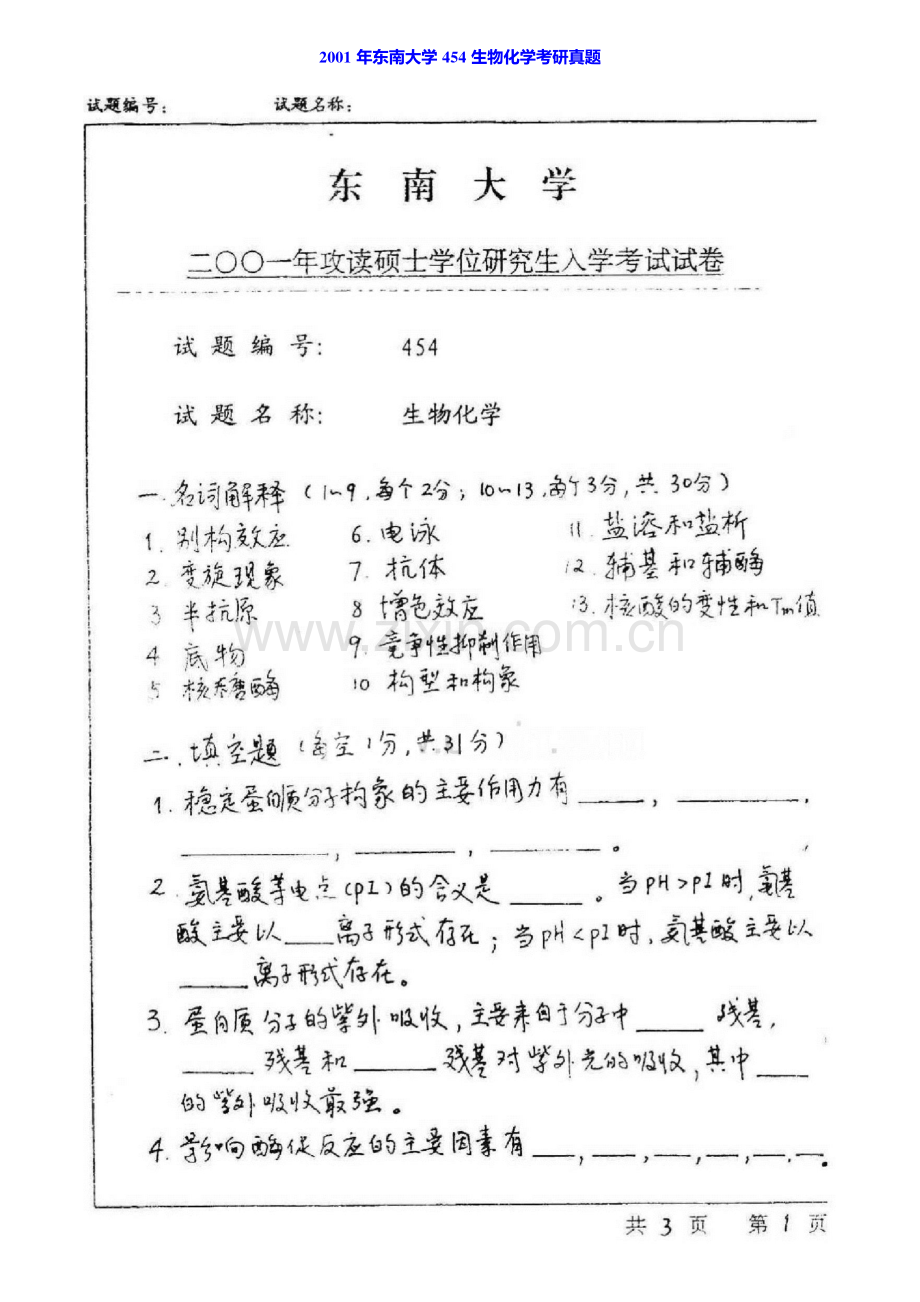 2001 年东南大学 454 生物化学考研真题
试题编号： 试题名称：
东 南 大 学
二〇〇一年攻读硕士学位研究生入学考试试卷
试 题 编 号： 454
试 题 名 称： 生物化学
一.名词解释（1~9,每个2分；10~13,每个3分,共30分）
1. 别构效应 6. 电泳 11. 盐溶和盐析
2. 变旋现象 7. 抗体 12. 辅基和辅酶
3 半抗原 8 增色效应 13. 核酸的变性和Tm值
4 底物 9. 竞争性抑制作用
5 核糖酶 10 构型和构象
www.zixin.com.cn
二.填空题（每空1分,共31分）
1. 稳定蛋白质分子构象的主要作用力有____，______，
______，______，______。
2. 氨基酸等电点(pI)的含义是_____。当pH>pI时,氨基
酸主要以___离子形式存在；当pH<pI时,氨基酸主要以
____离子形式存在。
3. 蛋白质分子的紫外吸收,主要来自于分子中____残基,
____残基和_____残基对紫外光的吸收,其中___
的紫外吸收最强。
4. 影响酶促反应的主要因素有___，___，___，___，___，___。
共 3 页 第 1 页